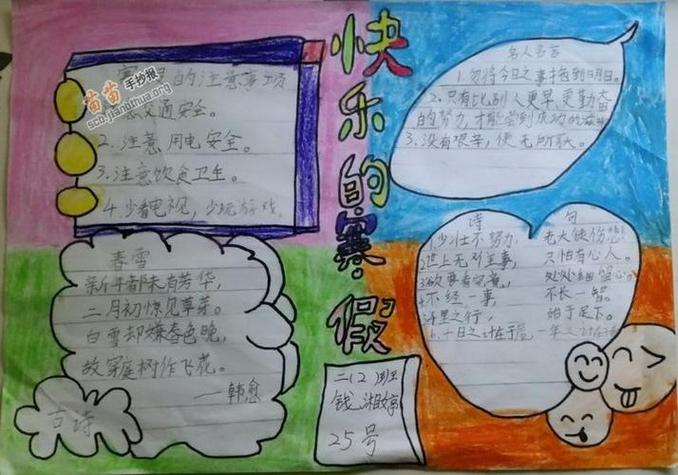 快乐的寒假
苗苗手抄报
sco.jianbihua.org
的注意事项
交通安全。
2.注意用电安全。
3.注意饮食卫生。
4.少看电视，少玩游戏.
名人名言
1.勿将今日之事拖到明日。
2.只有比别人更早、更勤奋
的努力,才能尝到成功的滋味
3.没有艰辛，便无所获。
春雪
新年都未有芳华，
二月初惊见草芽。
白雪却嫌春色晚，
故穿庭树作飞花。
—韩愈
古诗
诗 句
1.少壮不努力, 老大徒伤悲!
2.世上无难事, 只怕有心人。
处处留心
4.不经一事, 不长一智。
千里之行, 始于足下。
6.一日之计在于晨, 一年之计在于
二12班
钱湘婷
25号